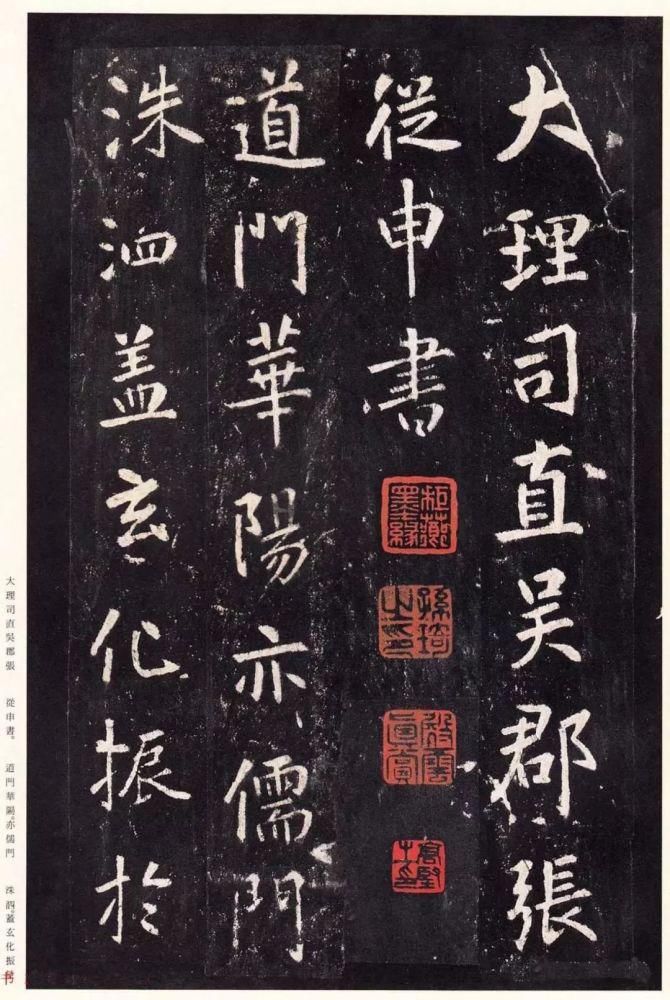 大理司直吴郡張
從申書
道門華陽亦儒門
洙泗盖玄化振扵
大理司直吳郡張　從申書。　道門華陽。亦儒門　洙泗。蓋玄化振